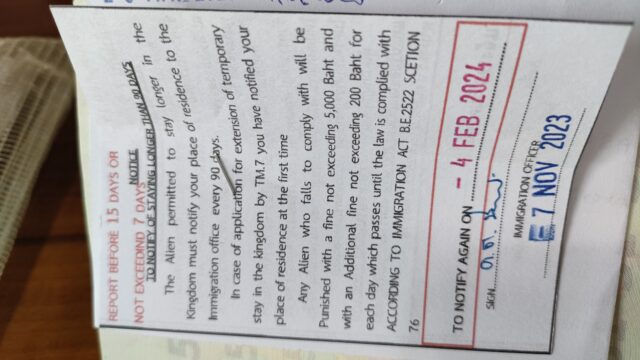 REPORT BEFORE 15 DAYS OR
NOT EXCEEDING 7 DAYS
NOTICE
TO NOTIFY OF STAYING LONGER THAN 90 DAYS
The Alien permitted to stay longer in the
Kingdom must notify your place of residence to the
Immigration office every 90 days.
In case of application for extension of temporary
stay in the kingdom by TM.7 you have notified your
place of residence at the first time
Any Alien who falls to comply with will be
Punished with a fine not exceeding 5,000 Baht and
with an Additional fine not exceeding 200 Baht for
each day which passes until the law is complied with
ACCORDING TO IMMIGRATION ACT B.E.2522 SCETION
76
TO NOTIFY AGAIN ON - 4 FEB 2024
SIGN
IMMIGRATION OFFICER
7 NOV 2023